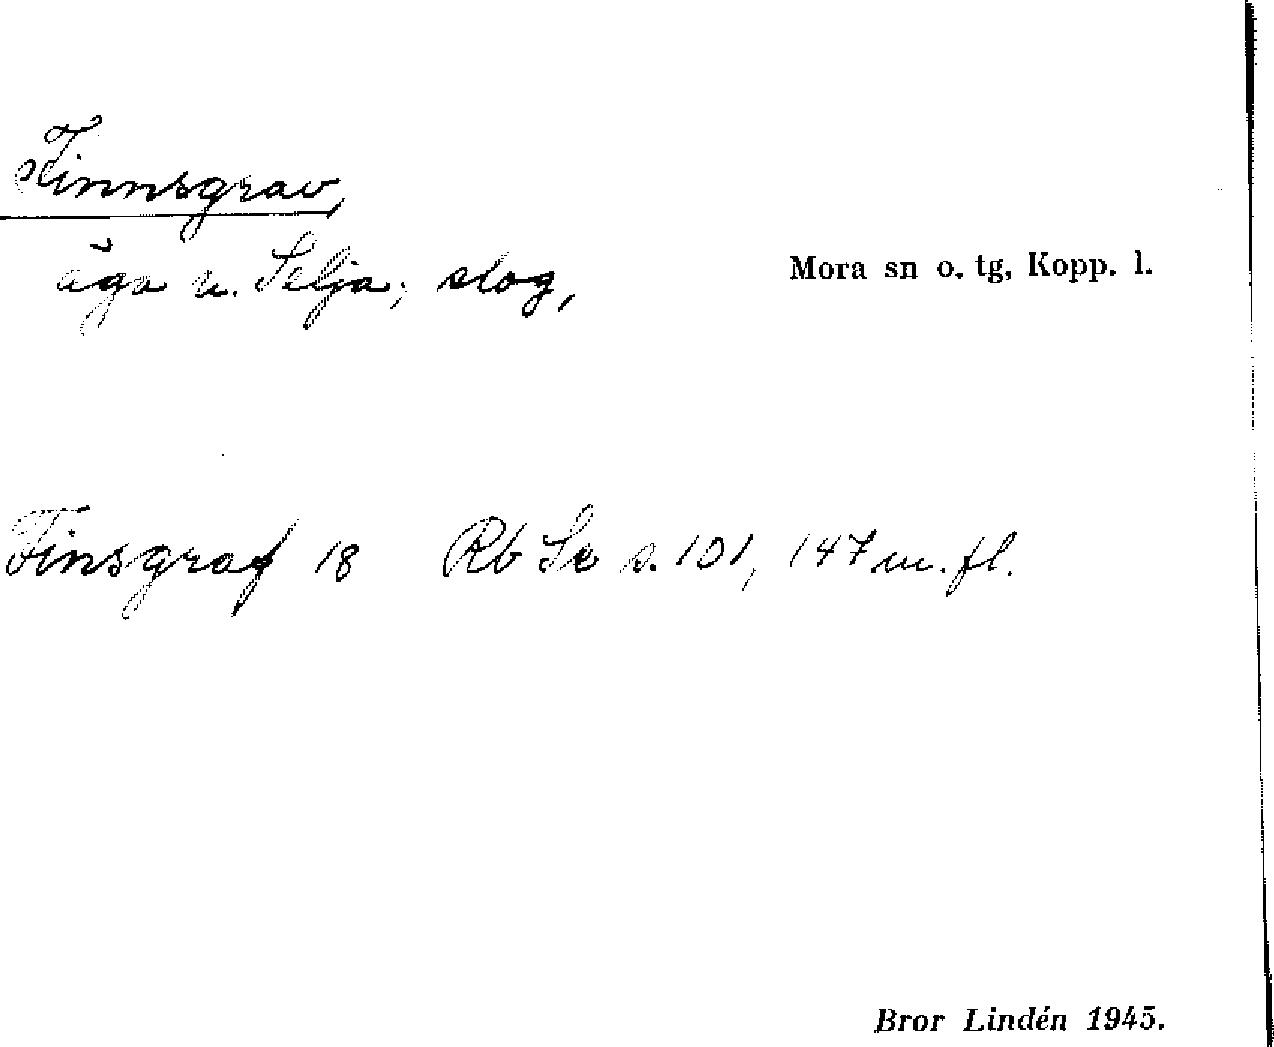 Finnsgrav,
äga u. Selja; slog,
Mora sn o. tg, Kopp. l.
Finsgraf 18 Rb Se s. 101, 147 m. fl.
Bror Lindén 1945.